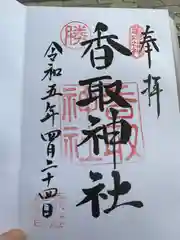 奉拝
香取神社
令和五年四月二十四日
勝
香取神社